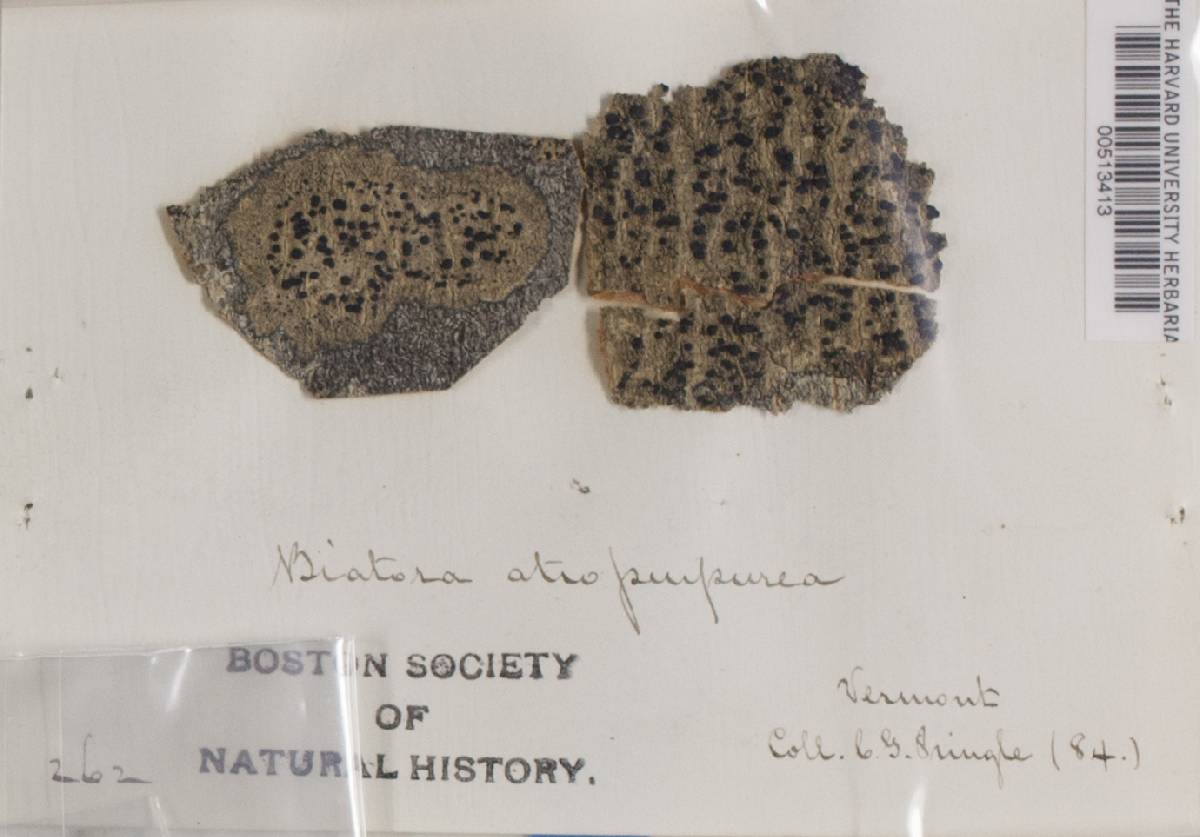 THE HARVARD UNIVERSITY HERBARIA
00513413
Biatora atropurpurea
BOSTON SOCIETY
OF
NATURAL HISTORY.
262
Vermont
Coll. C. G. Pringle (84.)